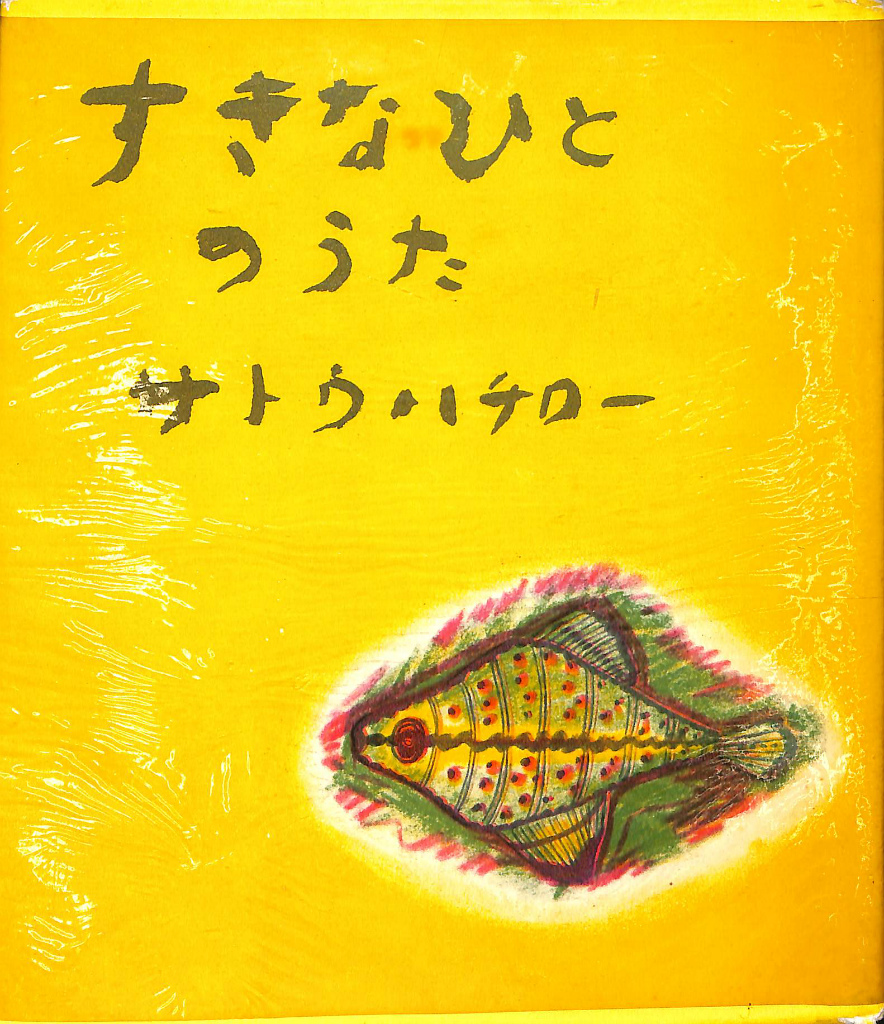 すきなひと
のうた
サトウ・ハチロー